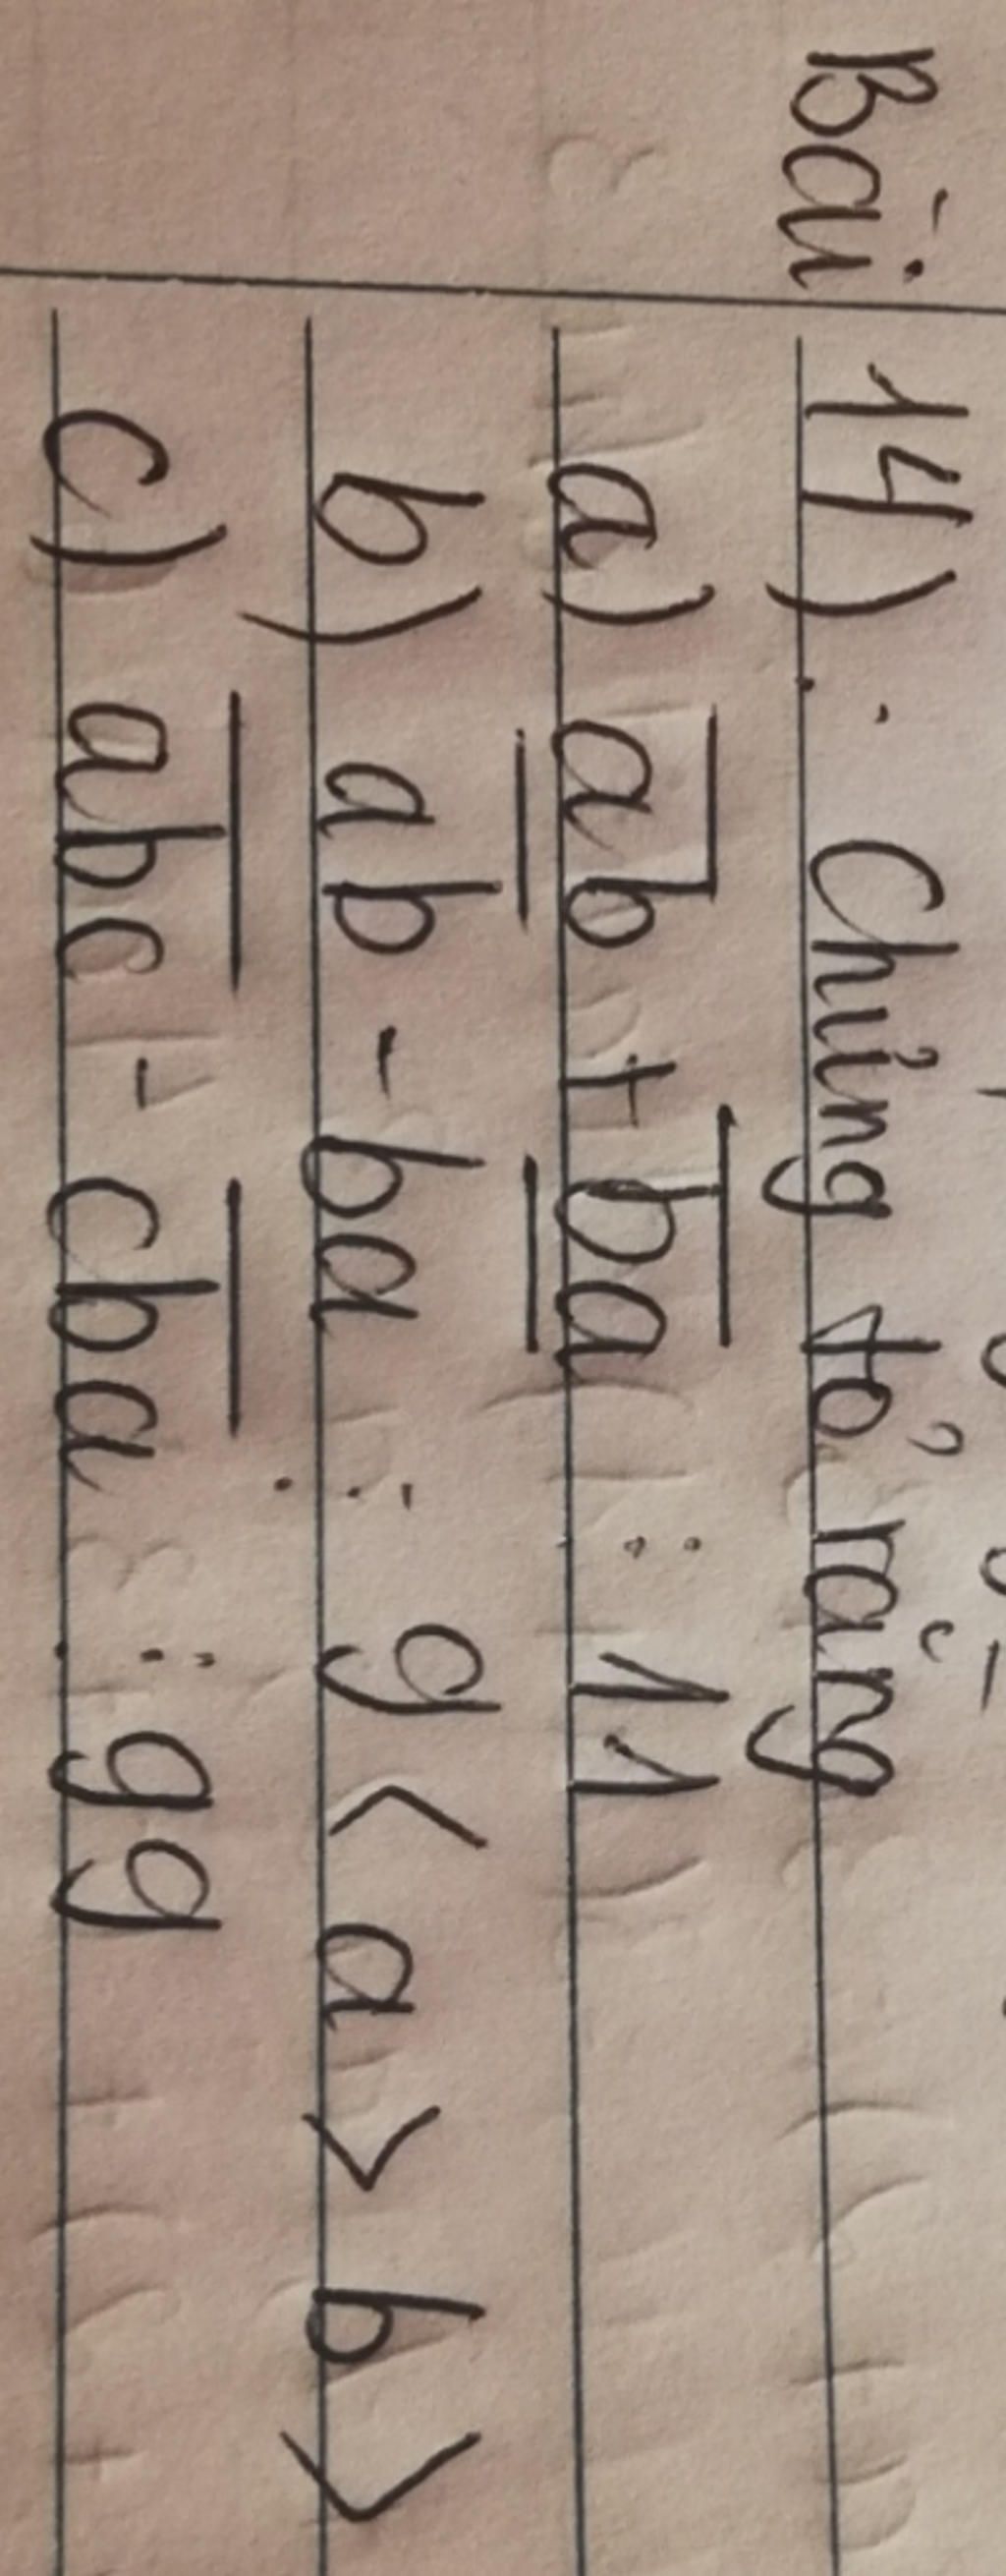 Bài 14): Chứng tỏ rằng
a) a̅b̅ + b̅a̅ ⋮ 11
b) a̅b̅ - b̅a̅ ⋮ 9 < a > b >
c) a̅b̅c̅ - c̅b̅a̅ ⋮ 99